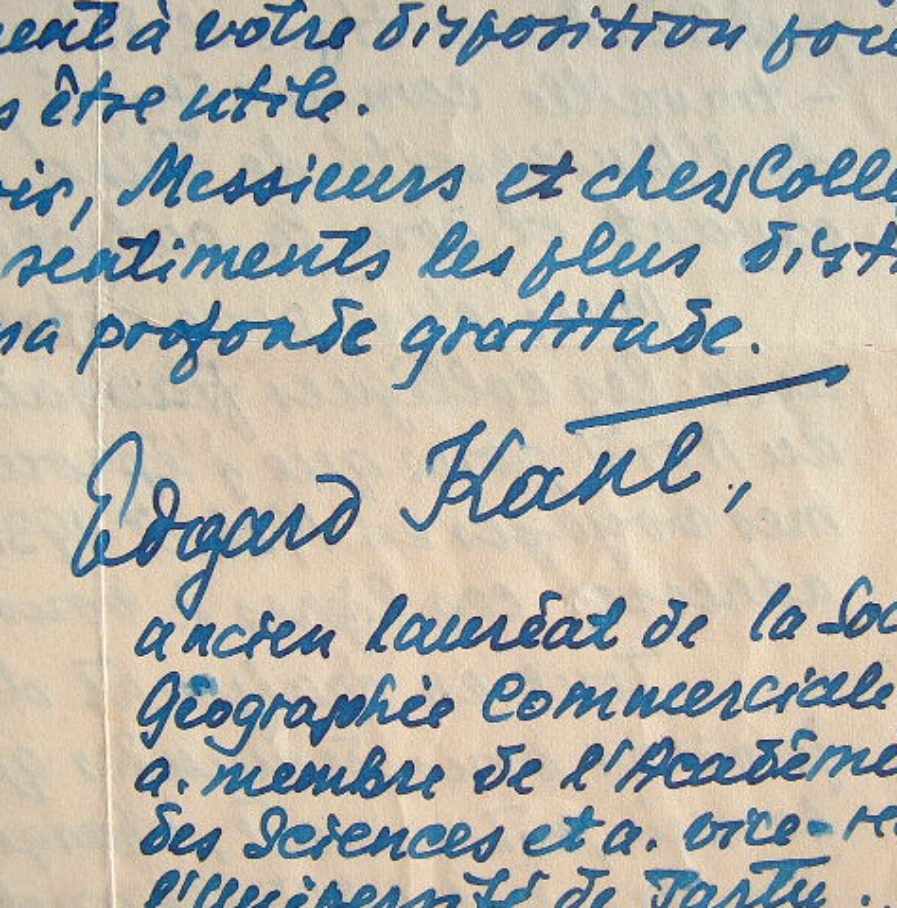 ent à votre disposition
s être utile.
oir, Messieurs et chers Colle
sentiments les plus dist
ma profonde gratitude.
Edgard Kant,
ancien lauréat de la Soc
Géographie Commerciale
a. membre de l'Académe
des Sciences et a. vice-re
l'Université de Tartu..